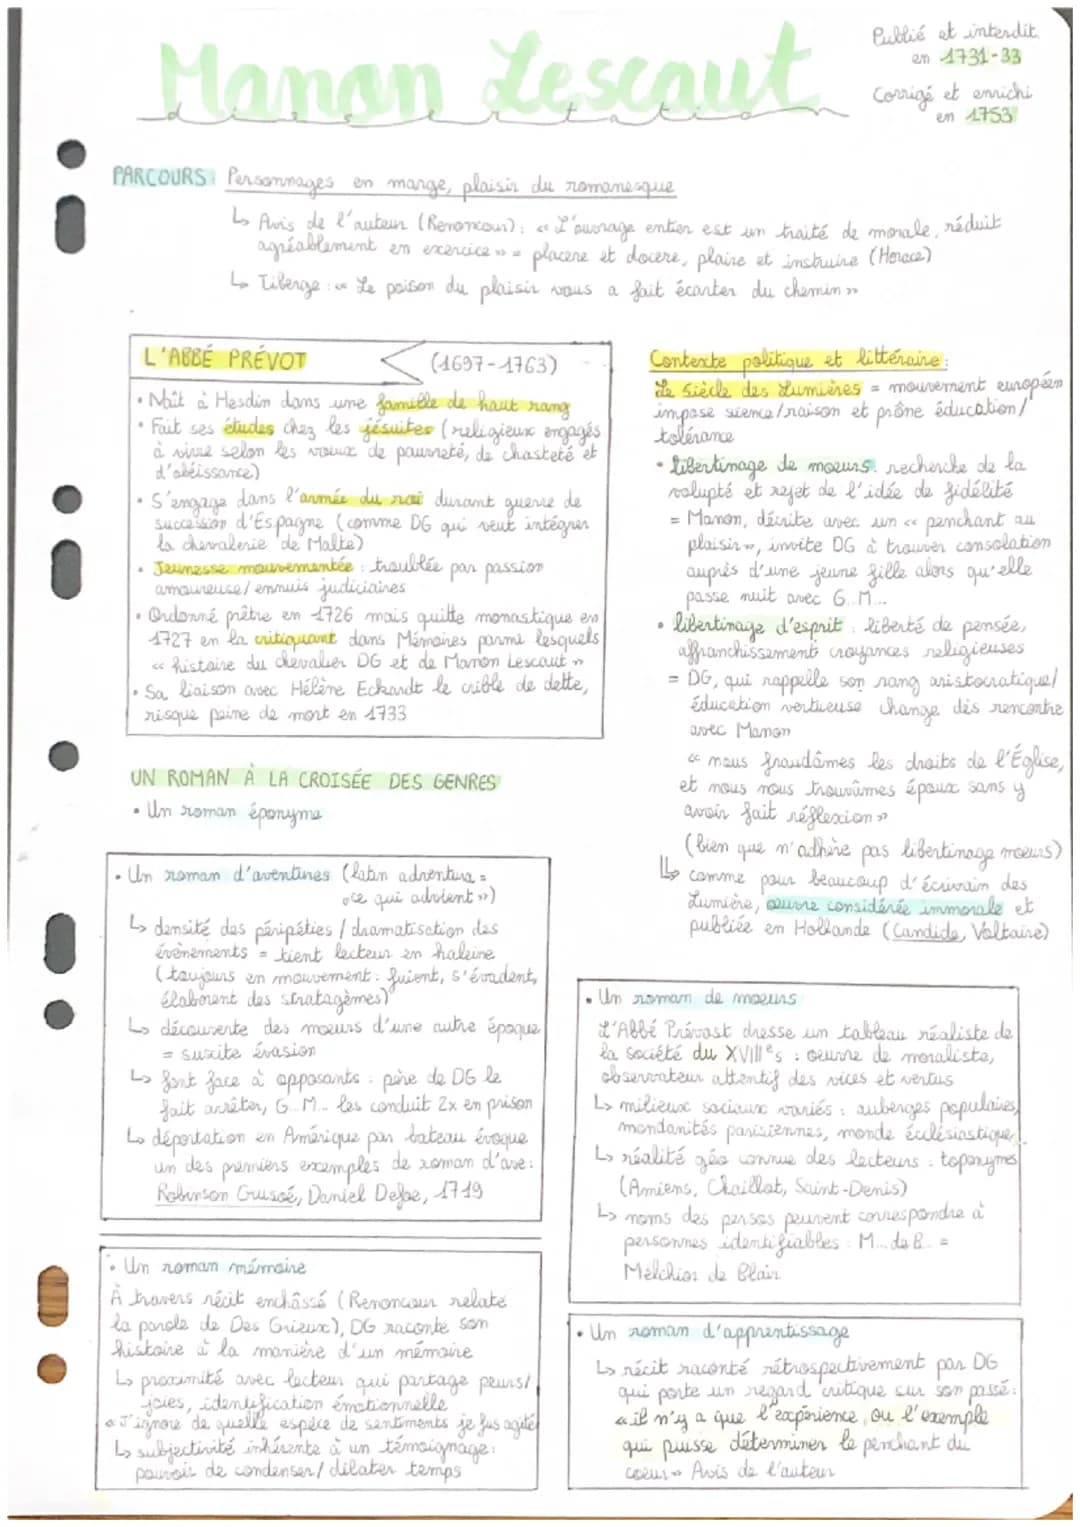 Manon Lescaut
dissertation
Publié et interdit
en 1731-33
Corrigé et enrichi
en 1753
PARCOURS: Personnages en marge, plaisir du romanesque
↳ Avis de l'auteur (Renoncour): « L'ouvrage entier est un traité de morale, réduit
agréablement en exercice » = placere et docere, plaire et instruire (Horace)
↳ Tiberge : « Le poison du plaisir vous a fait écarter du chemin »
L'ABBÉ PRÉVOT (1697-1763)
• Naît à Hesdin dans une famille de haut rang
• Fait ses études chez les jésuites (religieux engagés
à vivre selon les voeux de pauvreté, de chasteté et
d'obéissance)
• S'engage dans l'armée du roi durant guerre de
succession d'Espagne (comme DG qui veut intégrer
la chevalerie de Malte)
• Jeunesse mouvementée : troublée par passion
amoureuse/ ennuis judiciaires
• Ordonné prêtre en 1726 mais quitte monastique en
1727 en la critiquant dans Mémoires parmi lesquels
« histoire du chevalier DG et de Manon Lescaut »
• Sa liaison avec Hélène Eckardt le crible de dette,
risque peine de mort en 1733
UN ROMAN À LA CROISÉE DES GENRES
• Un roman éponyme
• Un roman d'aventures (latin adventura =
« ce qui advient »)
↳ densité des péripéties / dramatisation des
évènements = tient lecteur en haleine
(toujours en mouvement : fuient, s'évadent,
élaborent des stratagèmes)
↳ découverte des moeurs d'une autre époque
= suscite évasion
↳ font face à opposants : père de DG le
fait arrêter, G...M... les conduit 2x en prison
↳ déportation en Amérique par bateau évoque
un des premiers exemples de roman d'ave :
Robinson Crusoé, Daniel Defoe, 1719
• Un roman mémoire
À travers récit enchâssé (Renoncour relate
la parole de Des Grieux), DG raconte son
histoire à la manière d'un mémoire
↳ proximité avec lecteur qui partage peurs/
joies, identification émotionnelle
« J'ignore de quelle espèce de sentiments je fus agité »
↳ subjectivité inhérente à un témoignage :
pouvoir de condenser/ dilater temps
Contexte politique et littéraire :
Le siècle des Lumières = mouvement européen
impose science/raison et prône éducation/
tolérance
• libertinage de moeurs : recherche de la
volupté et rejet de l'idée de fidélité
= Manon, décrite avec un « penchant au
plaisir », invite DG à trouver consolation
auprès d'une jeune fille alors qu'elle
passe nuit avec G...M...
• libertinage d'esprit : liberté de pensée,
affranchissement croyances religieuses
= DG, qui rappelle son rang aristocratique/
éducation vertueuse change dès rencontre
avec Manon
« nous fraudâmes les droits de l'Église,
et nous nous trouvâmes époux sans y
avoir fait réflexion »
(bien que n'adhère pas libertinage moeurs)
↳ comme pour beaucoup d'écrivain des
Lumière, œuvre considérée immorale et
publiée en Hollande (Candide, Voltaire)
• Un roman de moeurs
L'Abbé Prévost dresse un tableau réaliste de
la société du XVIIIe s : oeuvre de moraliste,
observateur attentif des vices et vertus
↳ milieux sociaux variés : auberges populaires,
mondanités parisiennes, monde écclésiastique,
↳ réalité géo connue des lecteurs : toponymes
(Amiens, Chaillot, Saint-Denis)
↳ noms des persos peuvent correspondre à
personnes identifiables : M... de B... =
Melchior de Blair
• Un roman d'apprentissage
↳ récit raconté rétrospectivement par DG
qui porte un regard critique sur son passé :
« il n'y a que l'expérience, ou l'exemple
qui puisse déterminer le penchant du
coeur » Avis de l'auteur